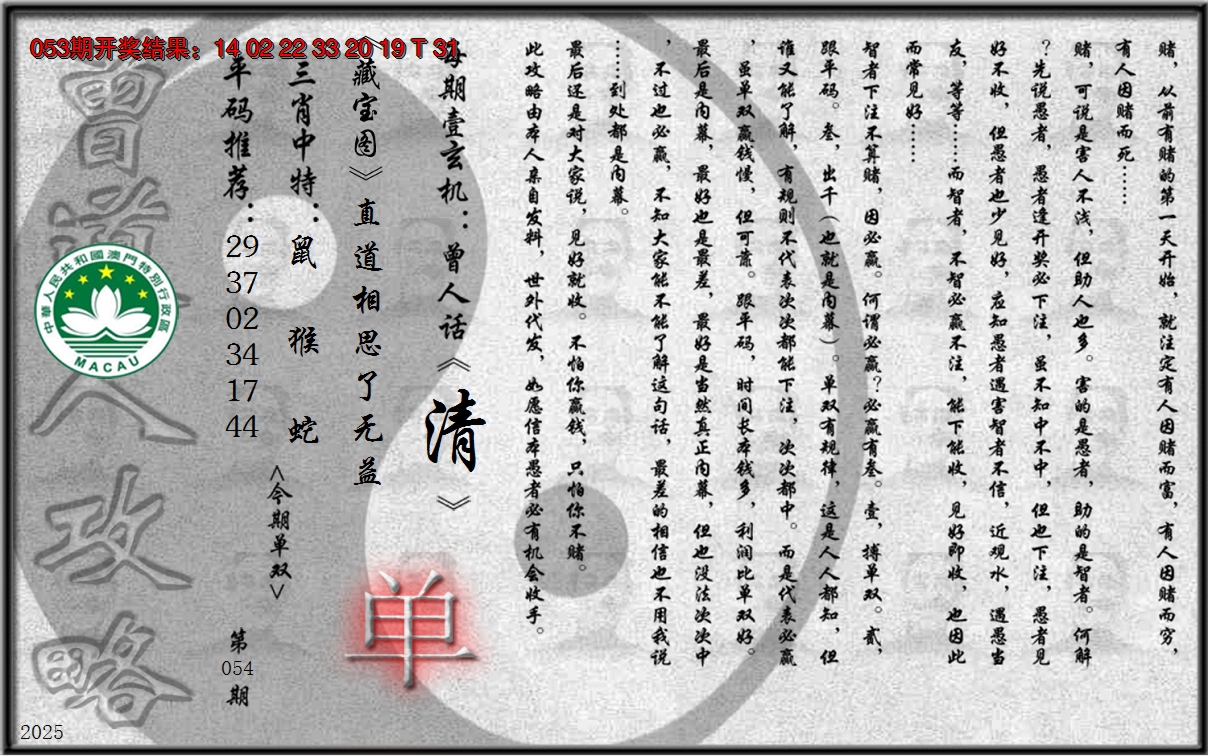 053期开奖结果：14 02 22 33 20 19 T 31
赌，从前有赌的第一天开始，就注定有人因赌而富，有人因赌而穷，
有人因赌而死……
赌，可说是害人不浅，但助人也多。害的是愚者，助的是智者。何解
？先说愚者，愚者逢开奖必下注，虽不知中不中，但也下注，愚者见
好不收，但愚者也少见好，应知愚者遇害智者不信，近观水，遇愚当
友，等等……而智者，不智必赢不注，能下能收，见好即收，也因此
而常见好……
智者下注不算赌，因必赢。何谓必赢？必赢有叁。壹，搏单双。贰，
跟平码。叁，出千（也就是内幕）。单双有规律，这是人人都知，但
谁又能了解，有规则不代表次次都能下注，次次都中。而是代表必赢
，虽单双赢钱慢，但可靠。跟平码，时间长本钱多，利润比单双好。
最后是内幕，最好也是最差，最好是当然真正内幕，但也没法次次中
，不过也必赢，不知大家能不能了解这句话，最差的相信也不用我说
……到处都是内幕。
最后还是对大家说，见好就收。不怕你赢钱，只怕你不赌。
此攻略由本人亲自发料，世外代发，如愿信本愚者必有机会收手。
每期壹玄机：曾人话《清》
《藏宝图》直道相思了无益
单
三肖中特：鼠 猴 蛇
<今期单双>
平码推荐：29 37 02 34 17 44
第054期
曾道人攻略
中華人民共和國澳門特別行政區
MACAU
2025